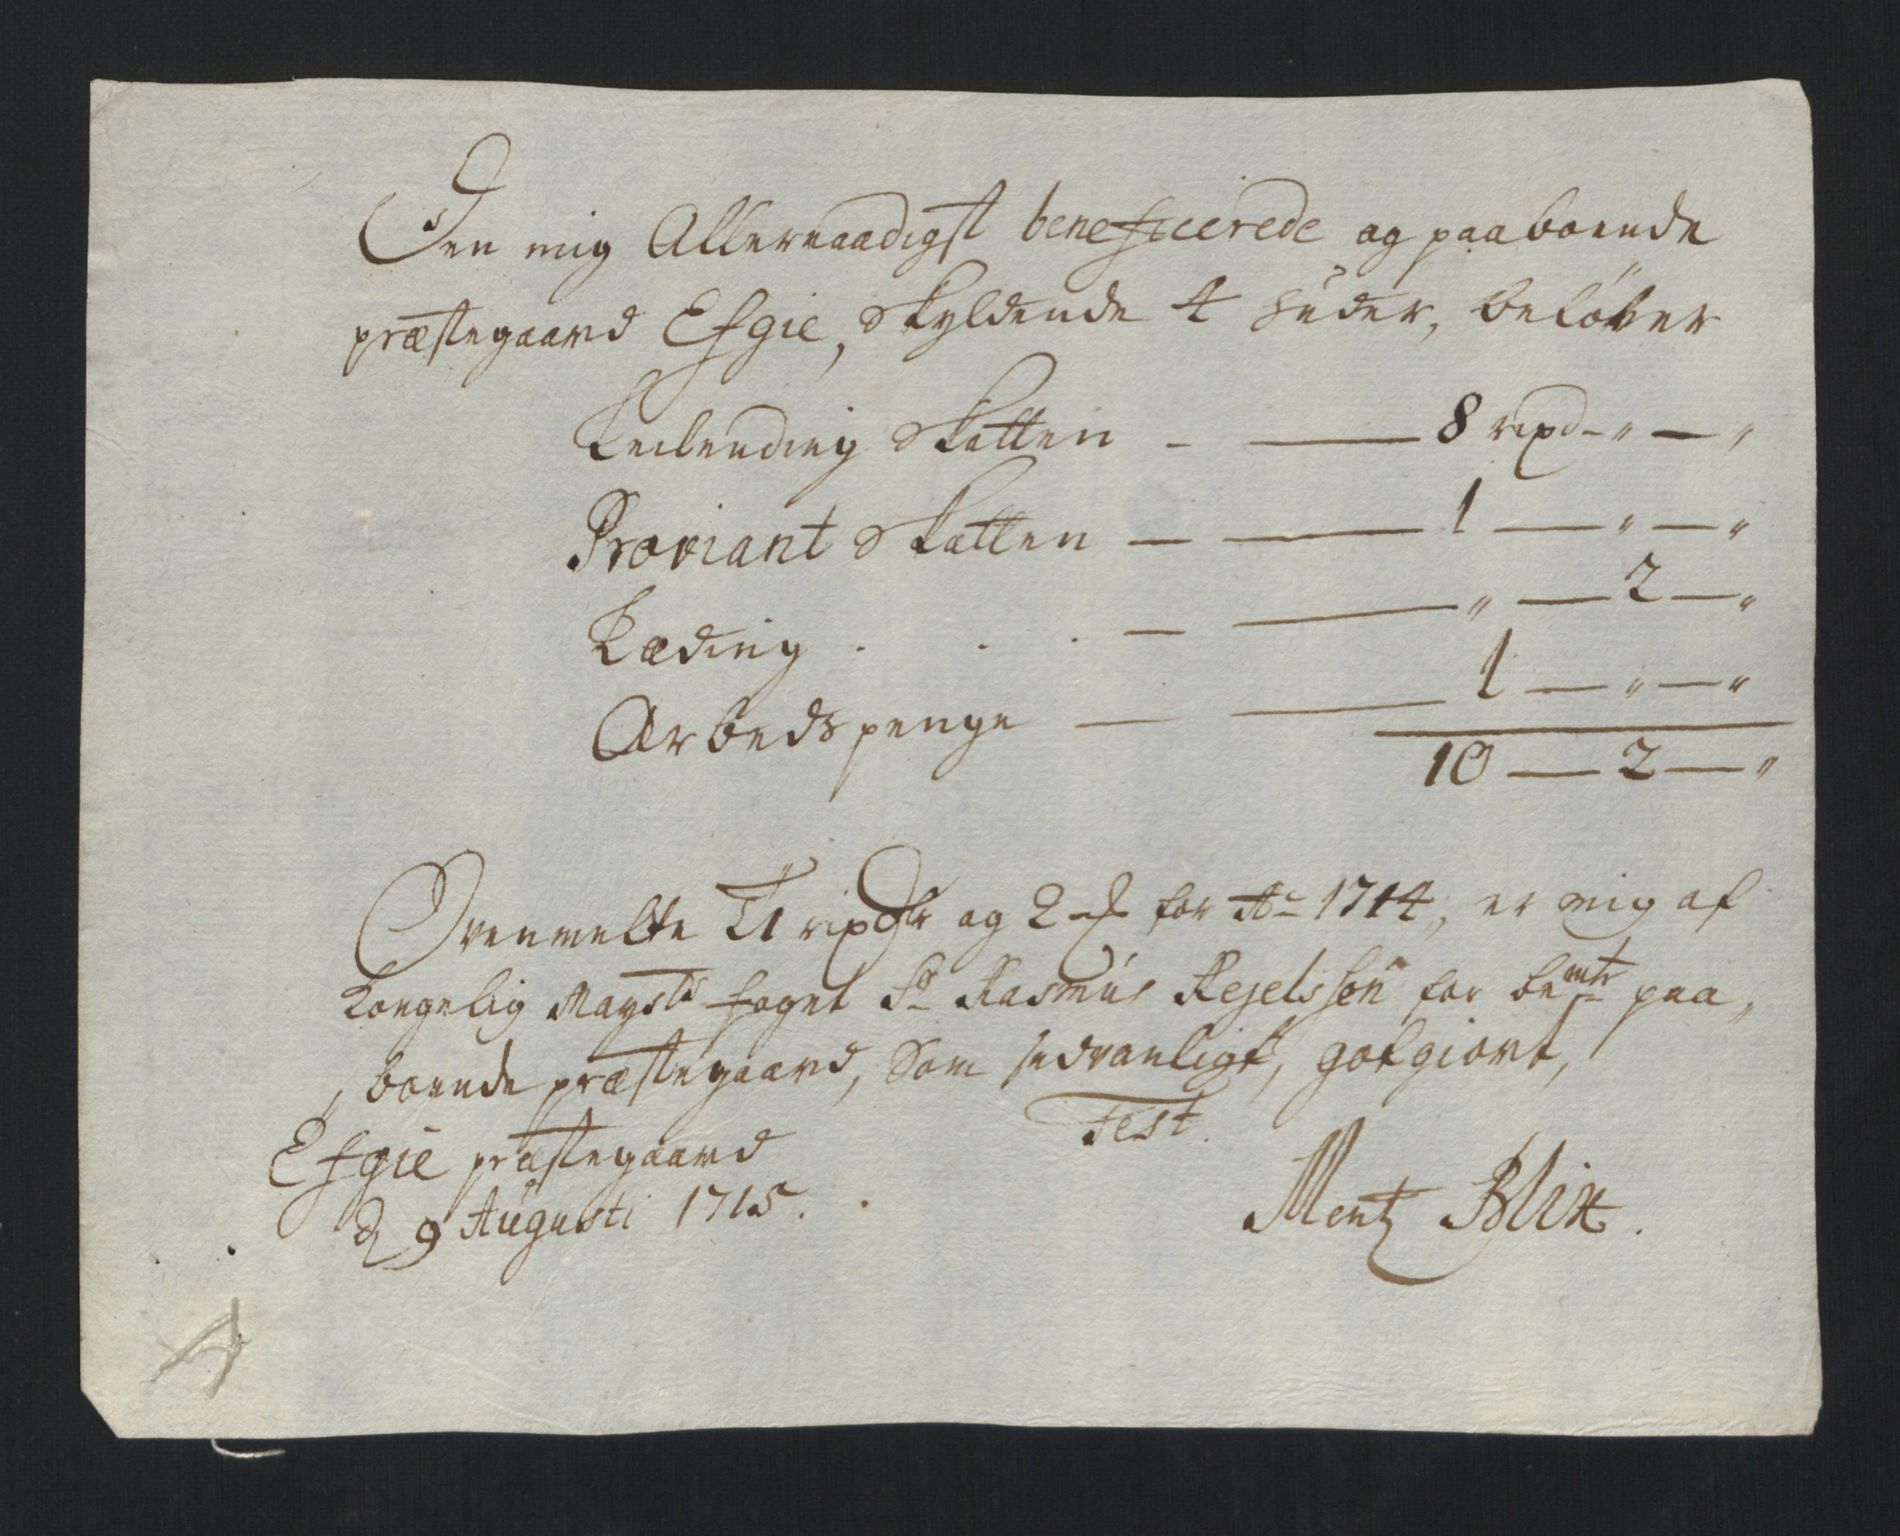 Den mig Allernaadigst beneficerede og paaboende
præstegaard Efgie, skyldende 4 huder, beløber
Leilending skatten - — 8 rixd - " — "
Proviant skatten — — 1 — " — "
Læding . . . — — " — 2 — "
Arbedspenge — — 1 — " — "
10 — 2 — "
Ovenmelte Ti rixdlr og 2 for Ao 1714, er mig af
Kongelig Mayts foget Sr Rasmus Kejelssøn for bemte paa,
,boende præstegaard, som sedvanligt, gotgiort,
Test.
Efgie præstegaard
d 9 Augusti 1715.
Mentz Blix.